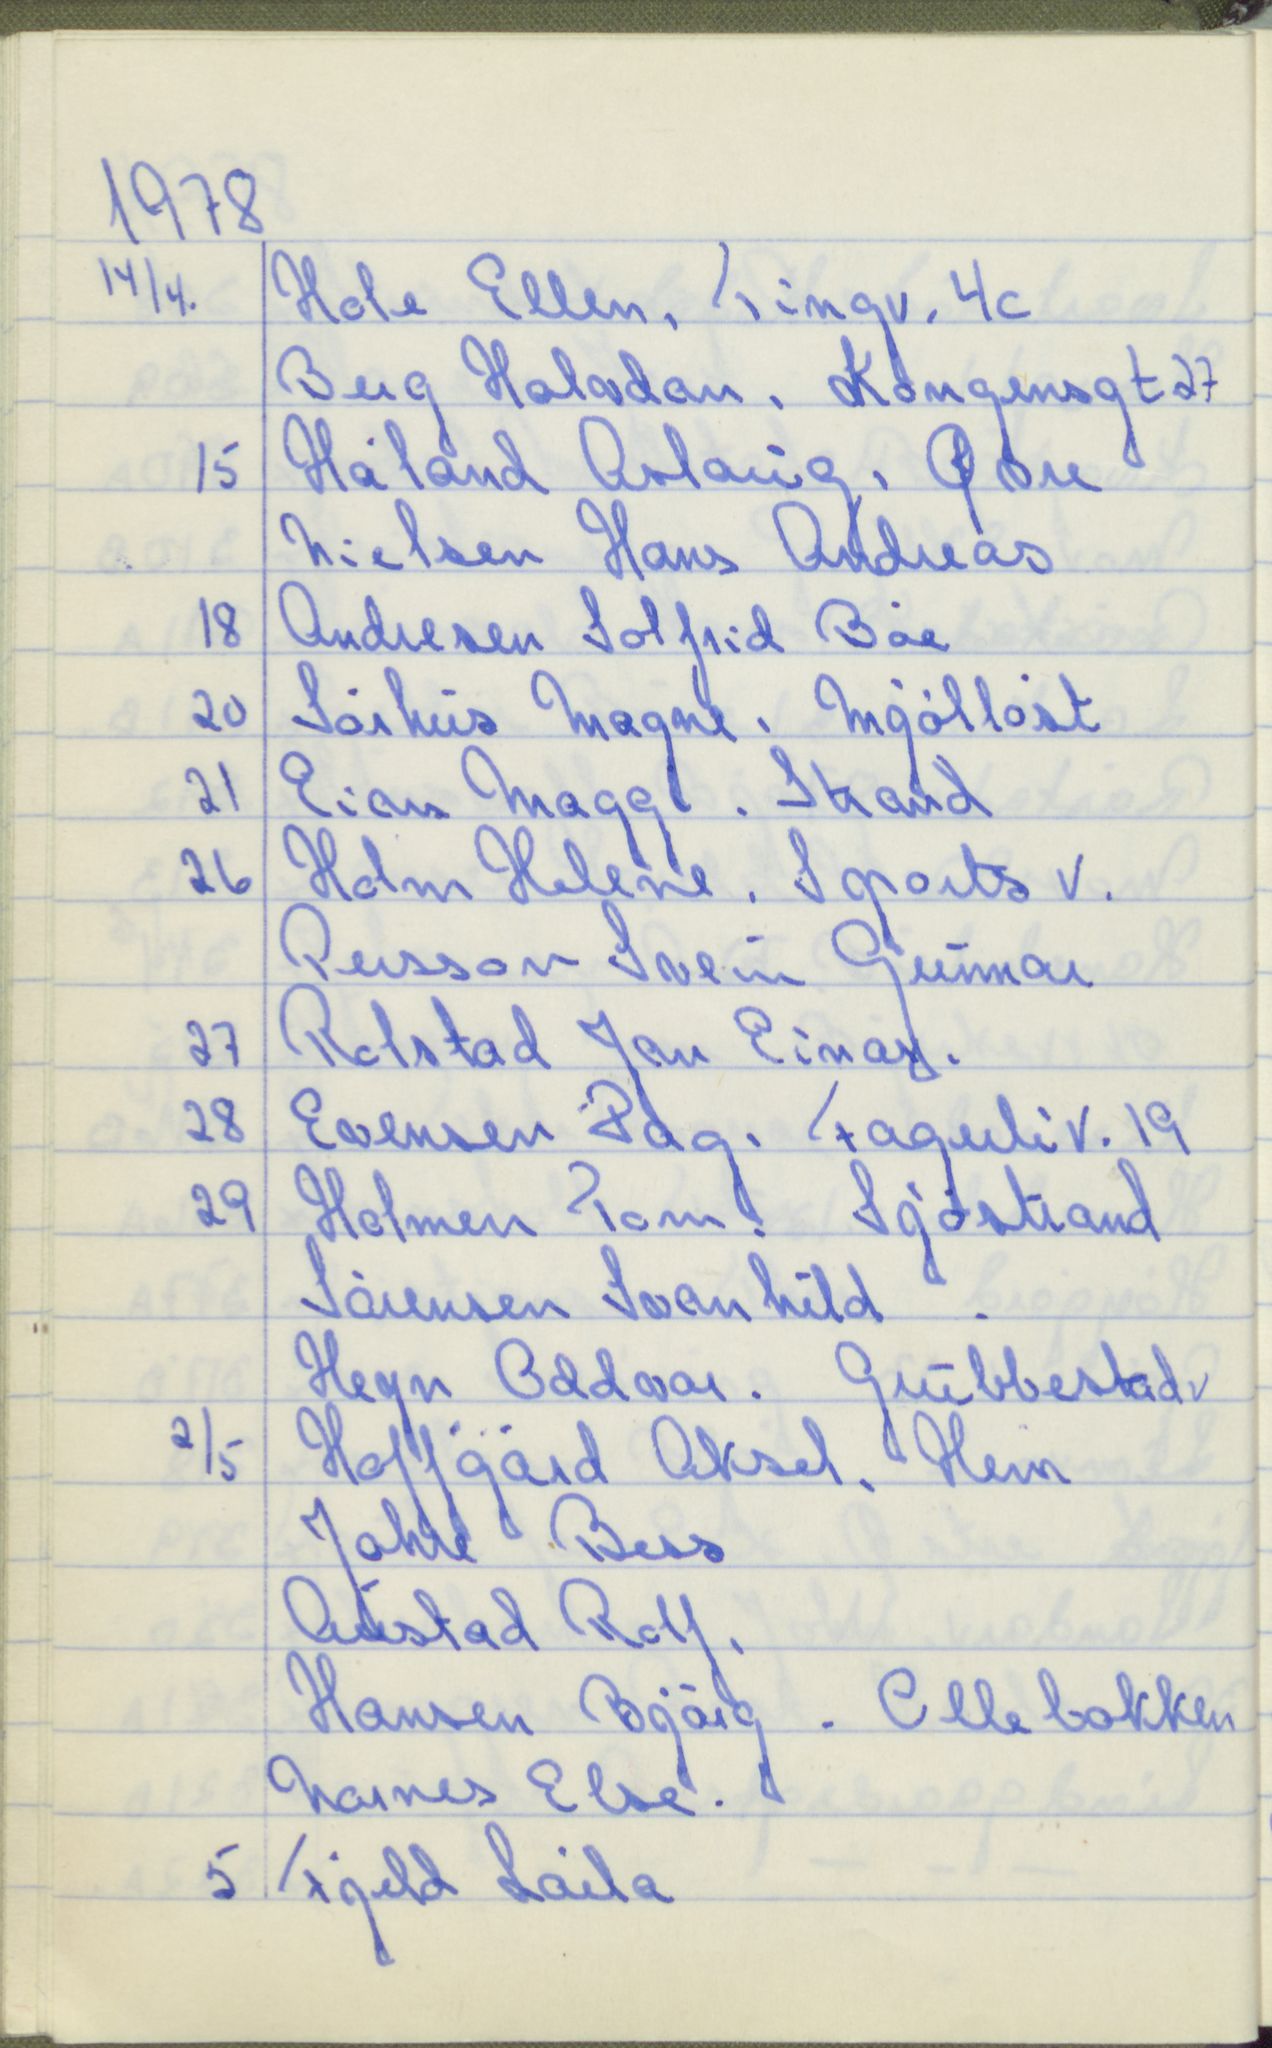 1978
14/4. Hole Ellen, Tingv. 4c
Berg Halvdan, Kongensgt 27
15 Håland Aslaug, Øvre
Nielsen Hans Andreas
18 Andresen Solfrid Bøe
20 Sørhus Magne, Mjølløst
21 Eian Maggi. Strand
26 Holm Helene, Sports v.
Persson Svein Gunnar
27 Rolstad Jan Einar.
28 Evensen Dag. Fagerliv. 19
29 Holmen Tom. Sjøstrand
Sørensen Svanhild
Hegn Oddvar. Grübbestadv
2/5 Hoffgård Aksel. Hem
Jahre Bess
Austad Rolf.
Hansen Bjørg. Ollebakken
Narnes Else.
5 Fjeld Laila